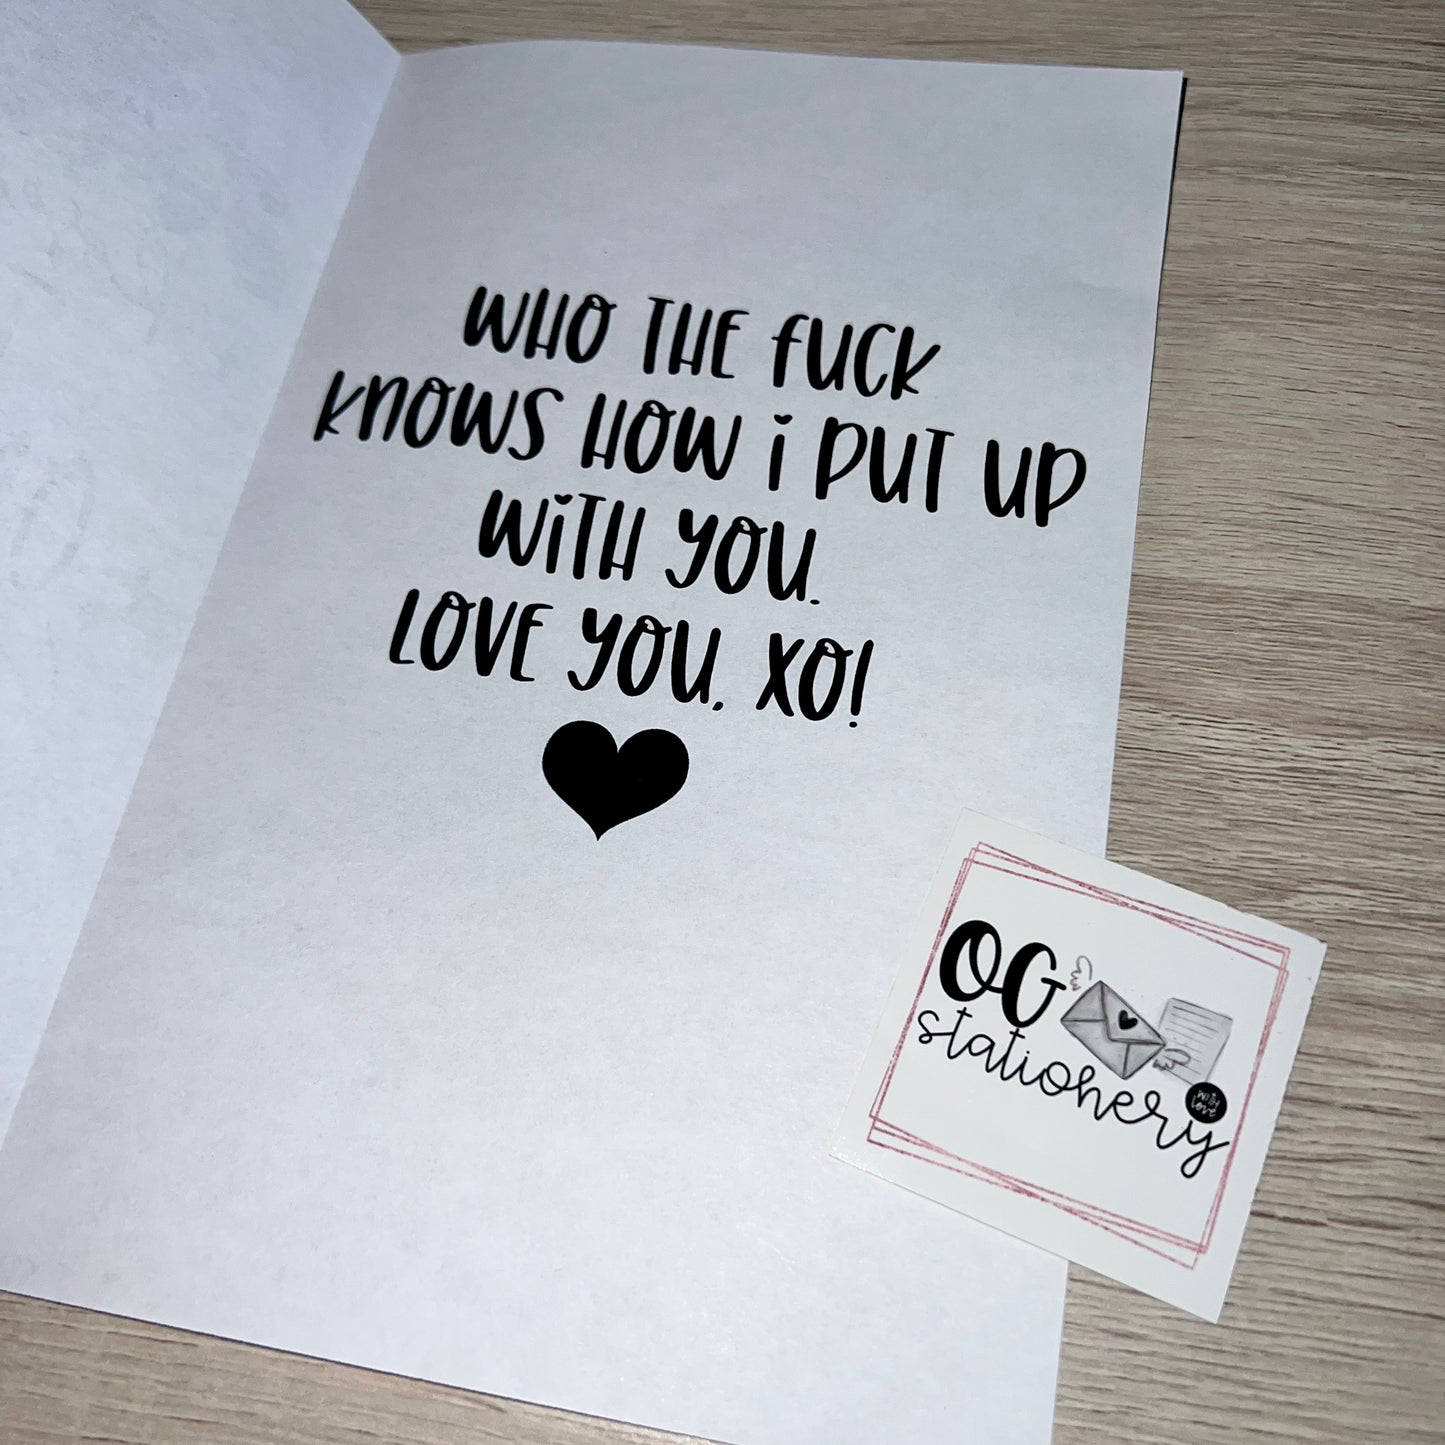 WHO THE fUCK
KNOWS HOW i PUT UP
WiTH YOU.
LOVE YOU, XO!
OG
stationery
WITH
Love